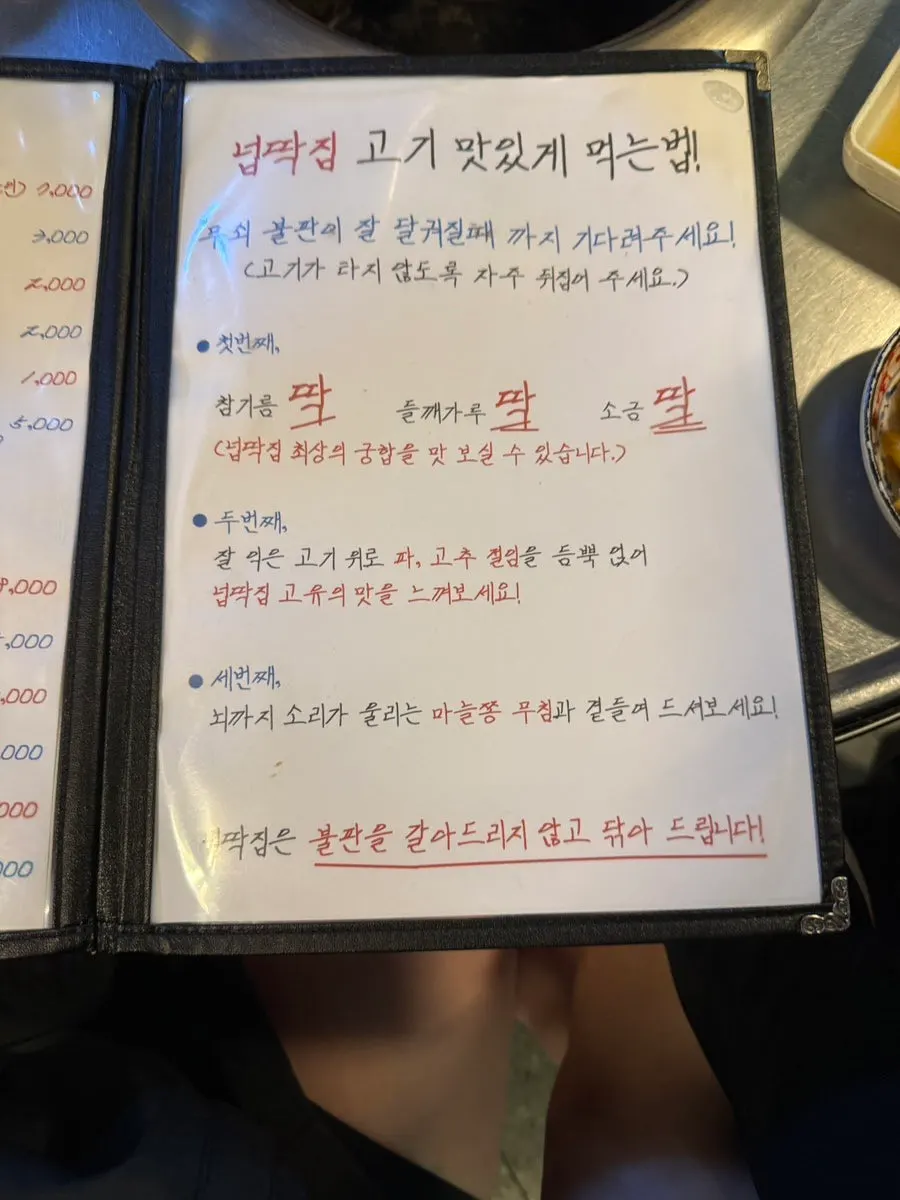 넙딱집 고기 맛있게 먹는법!
무쇠 불판이 잘 달궈질때 까지 기다려주세요!
(고기가 타지 않도록 자주 뒤집어 주세요.)
• 첫번째,
참기름 딱 들깨가루 딱 소금 딱
(넙딱집 최상의 궁합을 맛 보실 수 있습니다.)
• 두번째,
잘 익은 고기 위로 파, 고추 절임을 듬뿍 얹어
넙딱집 고유의 맛을 느껴보세요!
• 세번째,
뇌까지 소리가 울리는 마늘쫑 무침과 곁들여 드셔보세요!
넙딱집은 불판을 갈아드리지 않고 닦아 드립니다!
7,000
3,000
2,000
2,000
1,000
5,000
,000
,000
,000
000
000
000